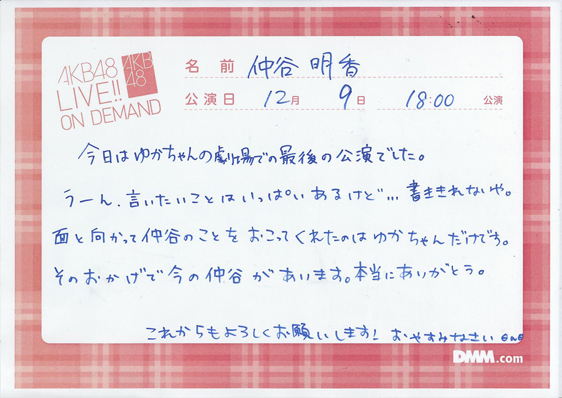 AKB48
LIVE!!
ON DEMAND
AKB
48
名前 仲谷 明香
公演日 12月 9日 18:00 公演
今日はゆかちゃんの劇場での最後の公演でした。
うーん、言いたいことはいっぱいあるけど…書ききれないや。
面と向かって仲谷のことをおこってくれたのはゆかちゃんだけです。
そのおかげで今の仲谷があいます。本当にありがとう。
これからもよろしくお願いします! おやすみなさい
DMM.com